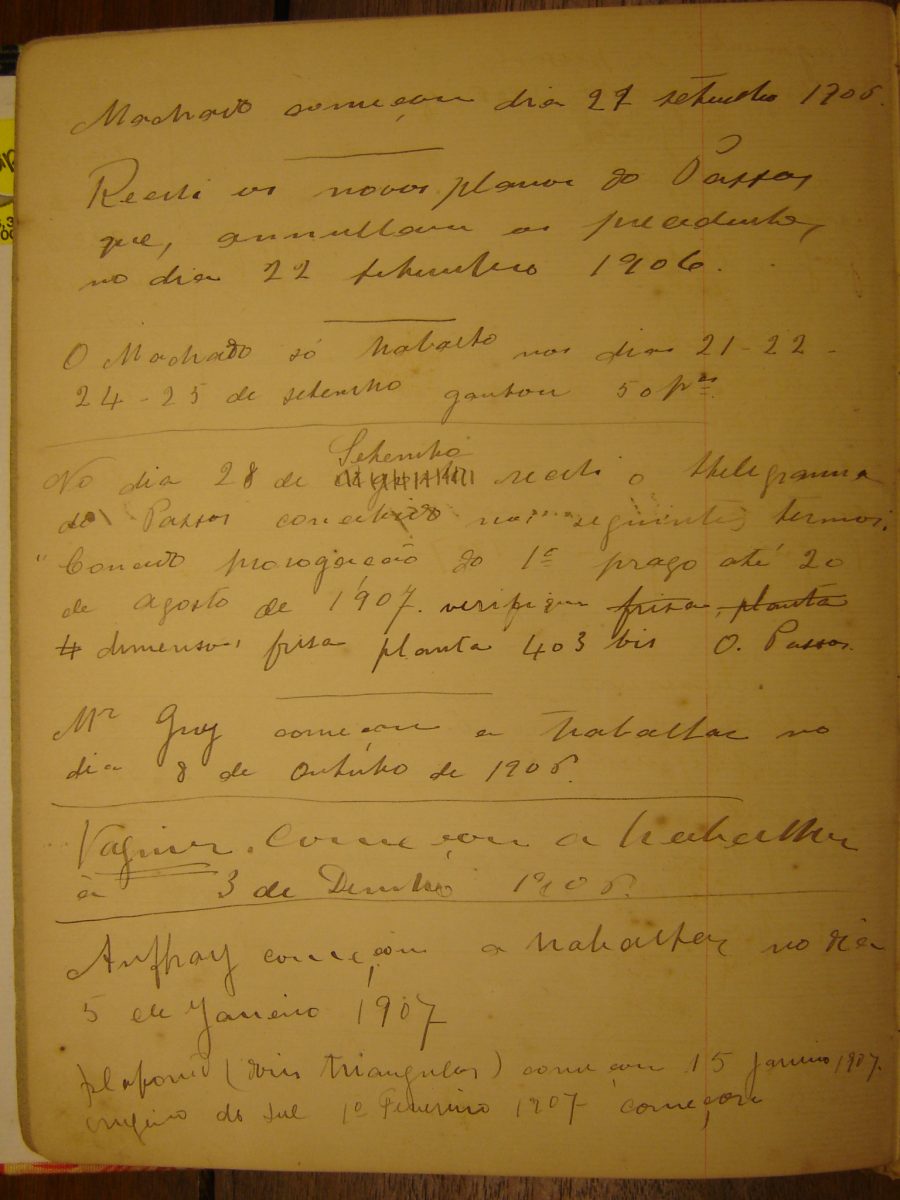 Machado começou dia 21 setembro 1906.
Recebi os novos planos do Passos
que, annullam os precedentes,
no dia 22 setembro 1906.
O Machado só trabalho nos dias 21-22-
24-25 de setembro ganhou 50 frs.
No dia 28 de Setembro recebi o thelegramma
do Passos concebido nos seguintes termos.
"Concedo prorogação do 1º prazo até 20
de agosto de 1907. verifique frisa, planta
dimensos frisa planta 403 bis O. Passos.
Mr Guy começou a trabalhar no
dia 8 de Outubro de 1906.
Vagner. começou a trabalhar
à 3 de 1906.
Auffray começou a trabalhar no dia
5 de Janeiro 1907
plafond (dois triangulos) começou 15 janeiro 1907.
do sul 1º Fevereiro 1907 começou